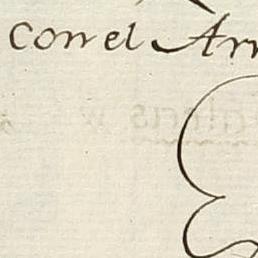 con el Arr